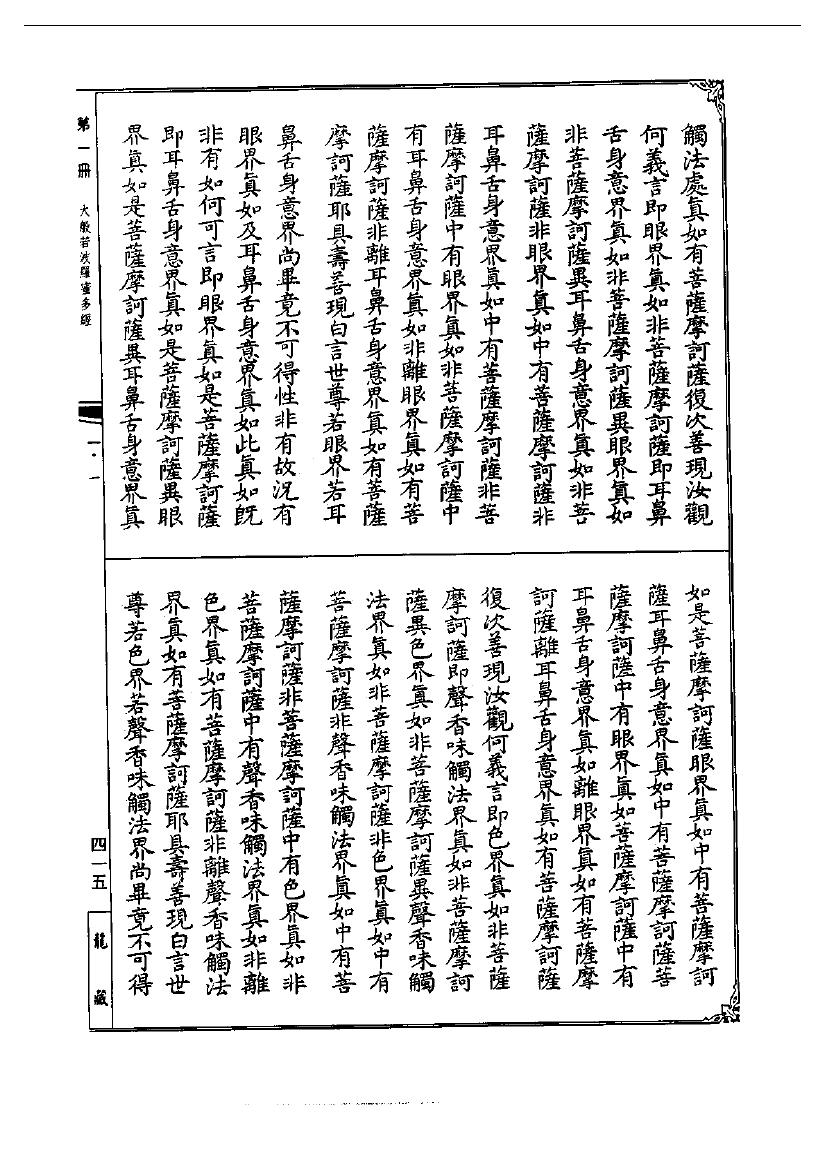 觸法處眞如有菩薩摩訶薩復次善現汝觀
何義言即眼界眞如非菩薩摩訶薩即耳鼻
舌身意界眞如非菩薩摩訶薩異眼界眞如
非菩薩摩訶薩異耳鼻舌身意界眞如非菩
薩摩訶薩非眼界眞如中有菩薩摩訶薩非
耳鼻舌身意界眞如中有菩薩摩訶薩非菩
薩摩訶薩中有眼界眞如非菩薩摩訶薩中
有耳鼻舌身意界眞如非離眼界眞如有菩
薩摩訶薩非離耳鼻舌身意界眞如有菩薩
摩訶薩耶具壽善現白言世尊若眼界若耳
鼻舌身意界尚畢竟不可得性非有故況有
眼界眞如及耳鼻舌身意界眞如此眞如旣
非有如何可言即眼界眞如是菩薩摩訶薩
即耳鼻舌身意界眞如是菩薩摩訶薩異眼
界眞如是菩薩摩訶薩異耳鼻舌身意界眞
如是菩薩摩訶薩眼界眞如中有菩薩摩訶
薩耳鼻舌身意界眞如中有菩薩摩訶薩菩
薩摩訶薩中有眼界眞如菩薩摩訶薩中有
耳鼻舌身意界眞如離眼界眞如有菩薩摩
訶薩離耳鼻舌身意界眞如有菩薩摩訶薩
復次善現汝觀何義言即色界眞如非菩薩
摩訶薩即聲香味觸法界眞如非菩薩摩訶
薩異色界眞如非菩薩摩訶薩異聲香味觸
法界眞如非菩薩摩訶薩非色界眞如中有
菩薩摩訶薩非聲香味觸法界眞如中有菩
薩摩訶薩非菩薩摩訶薩中有色界眞如非
菩薩摩訶薩中有聲香味觸法界眞如非離
色界眞如有菩薩摩訶薩非離聲香味觸法
界眞如有菩薩摩訶薩耶具壽善現白言世
尊若色界若聲香味觸法界尚畢竟不可得
第一冊 大般若波羅蜜多經
一·一
四一五
龍藏